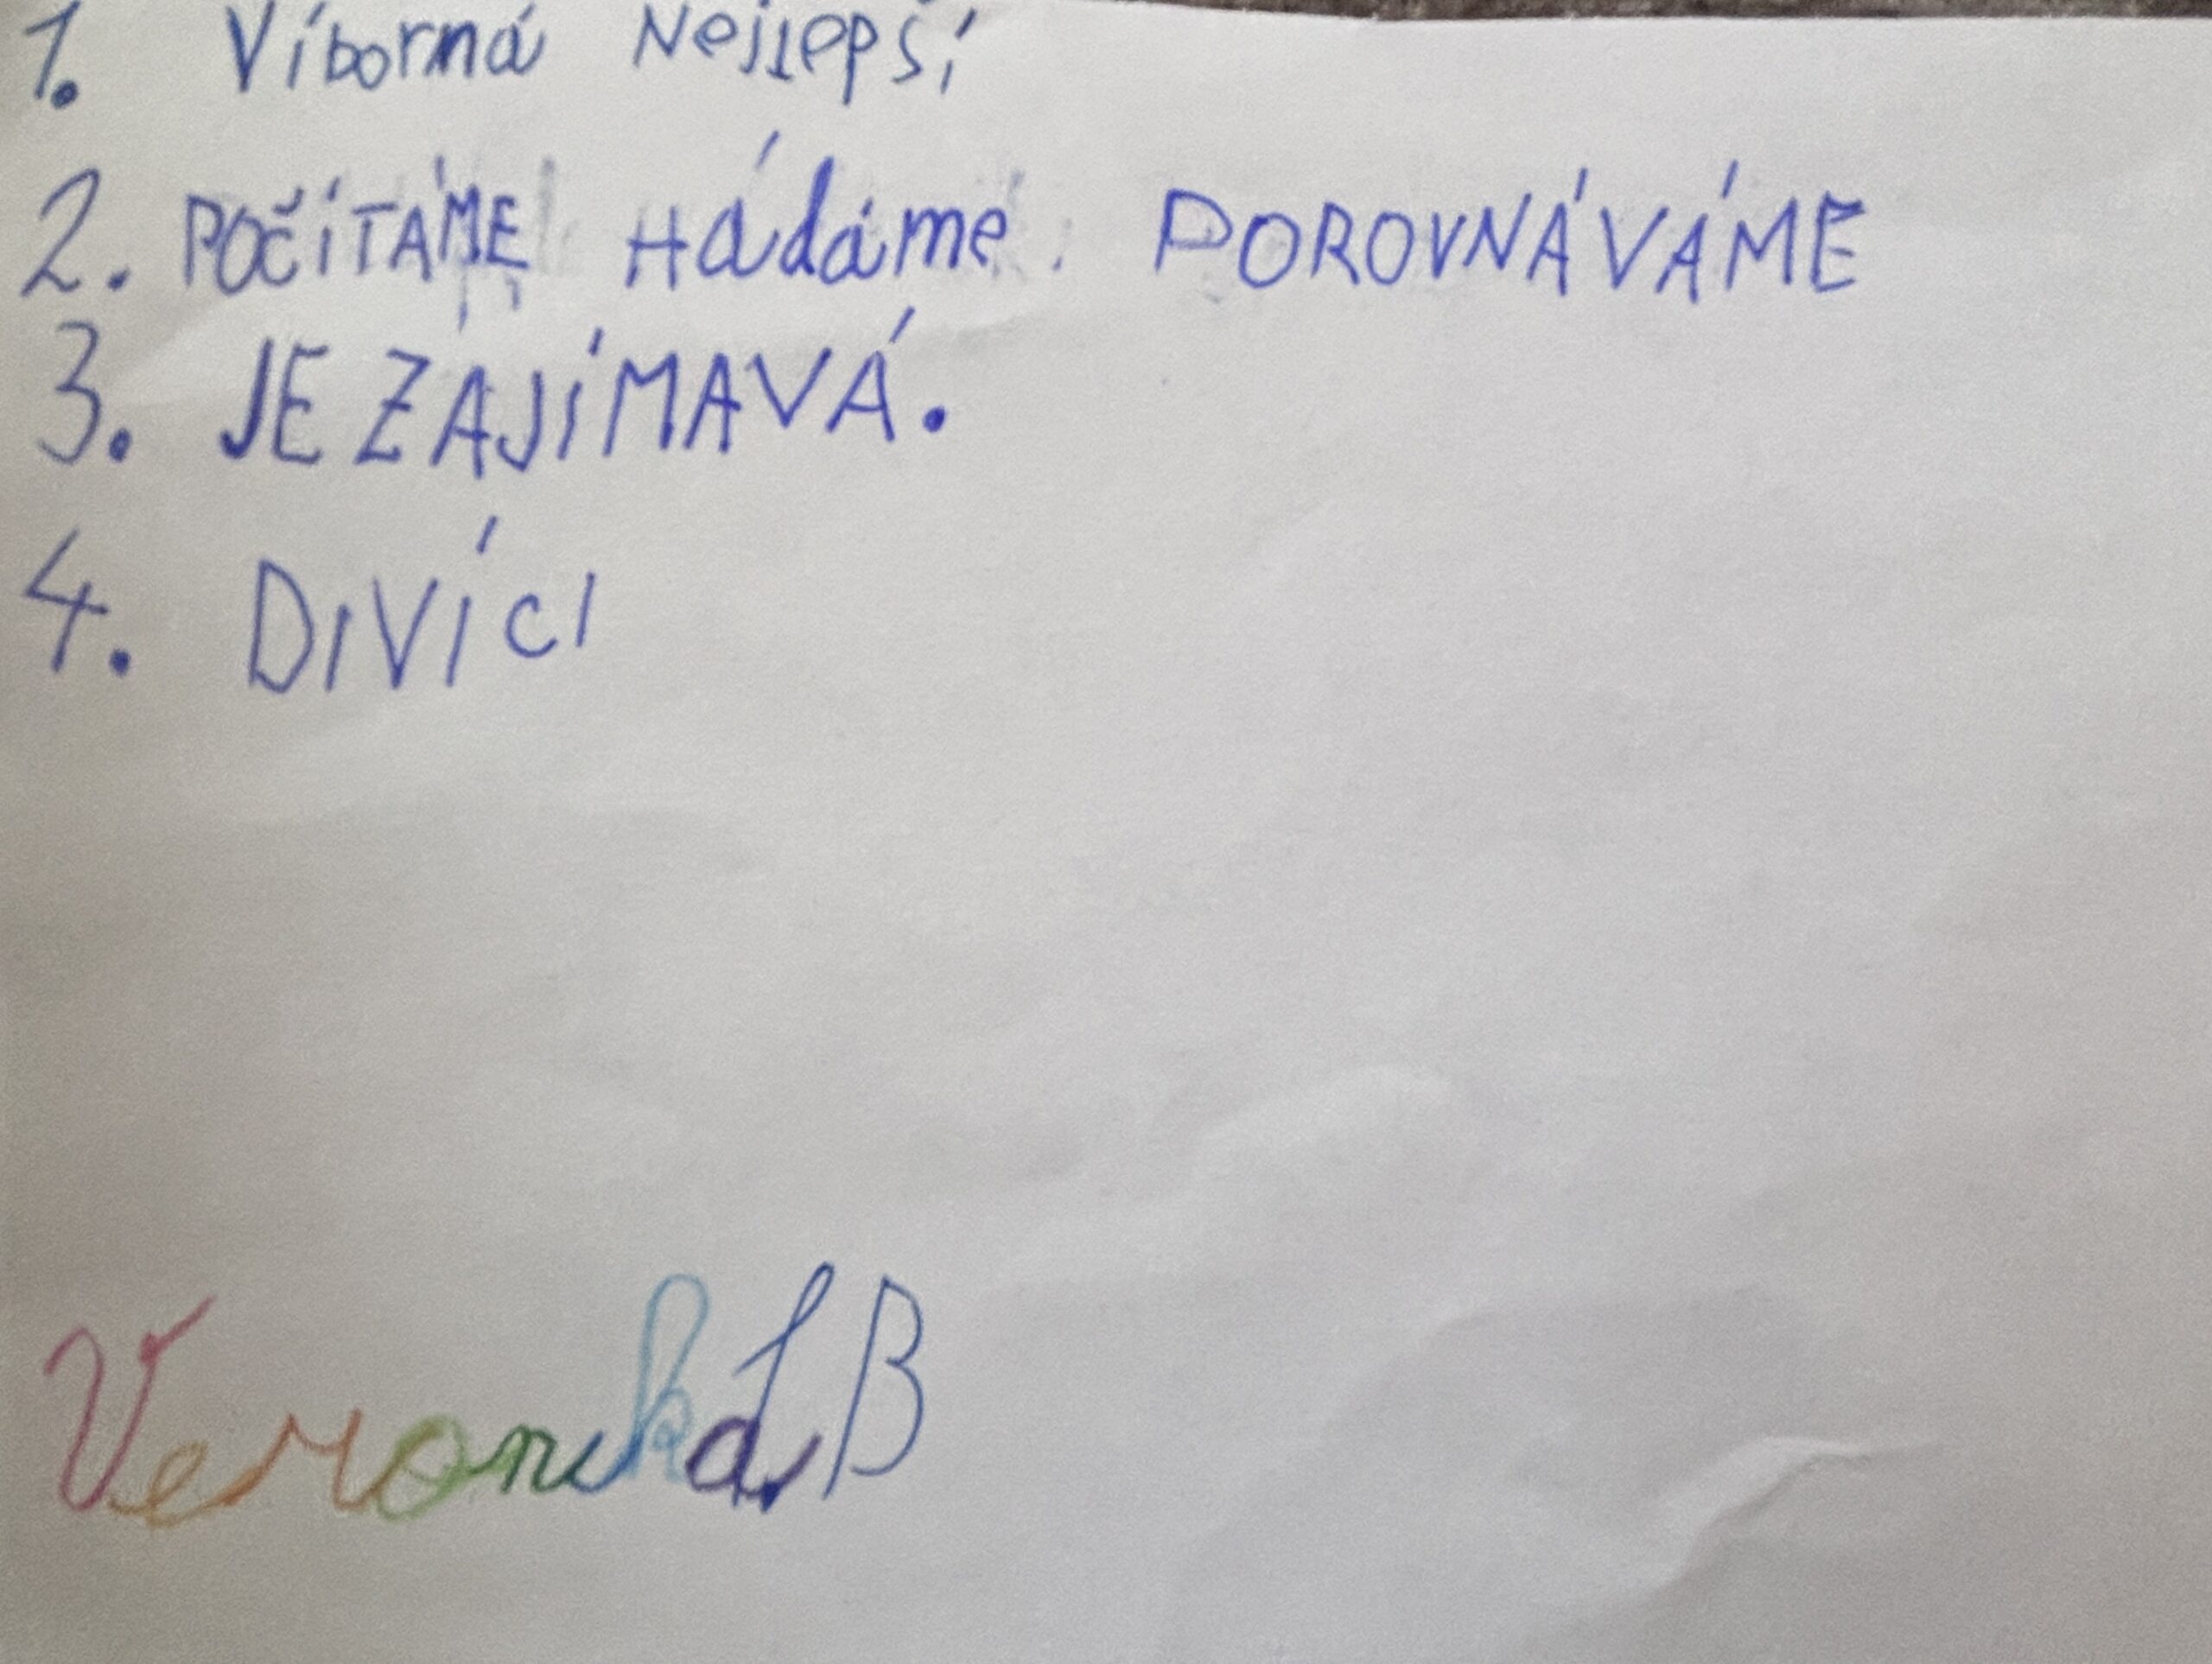 1. Víborná Nejlepší
2. POČÍTÁME Hádáme POROVNÁVÁME
3. JE ZAJÍMAVÁ.
4. DIVÍCI
Veronika Ł B